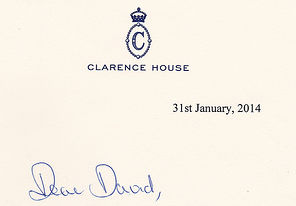 C
CLARENCE HOUSE
31st January, 2014
Dear David,